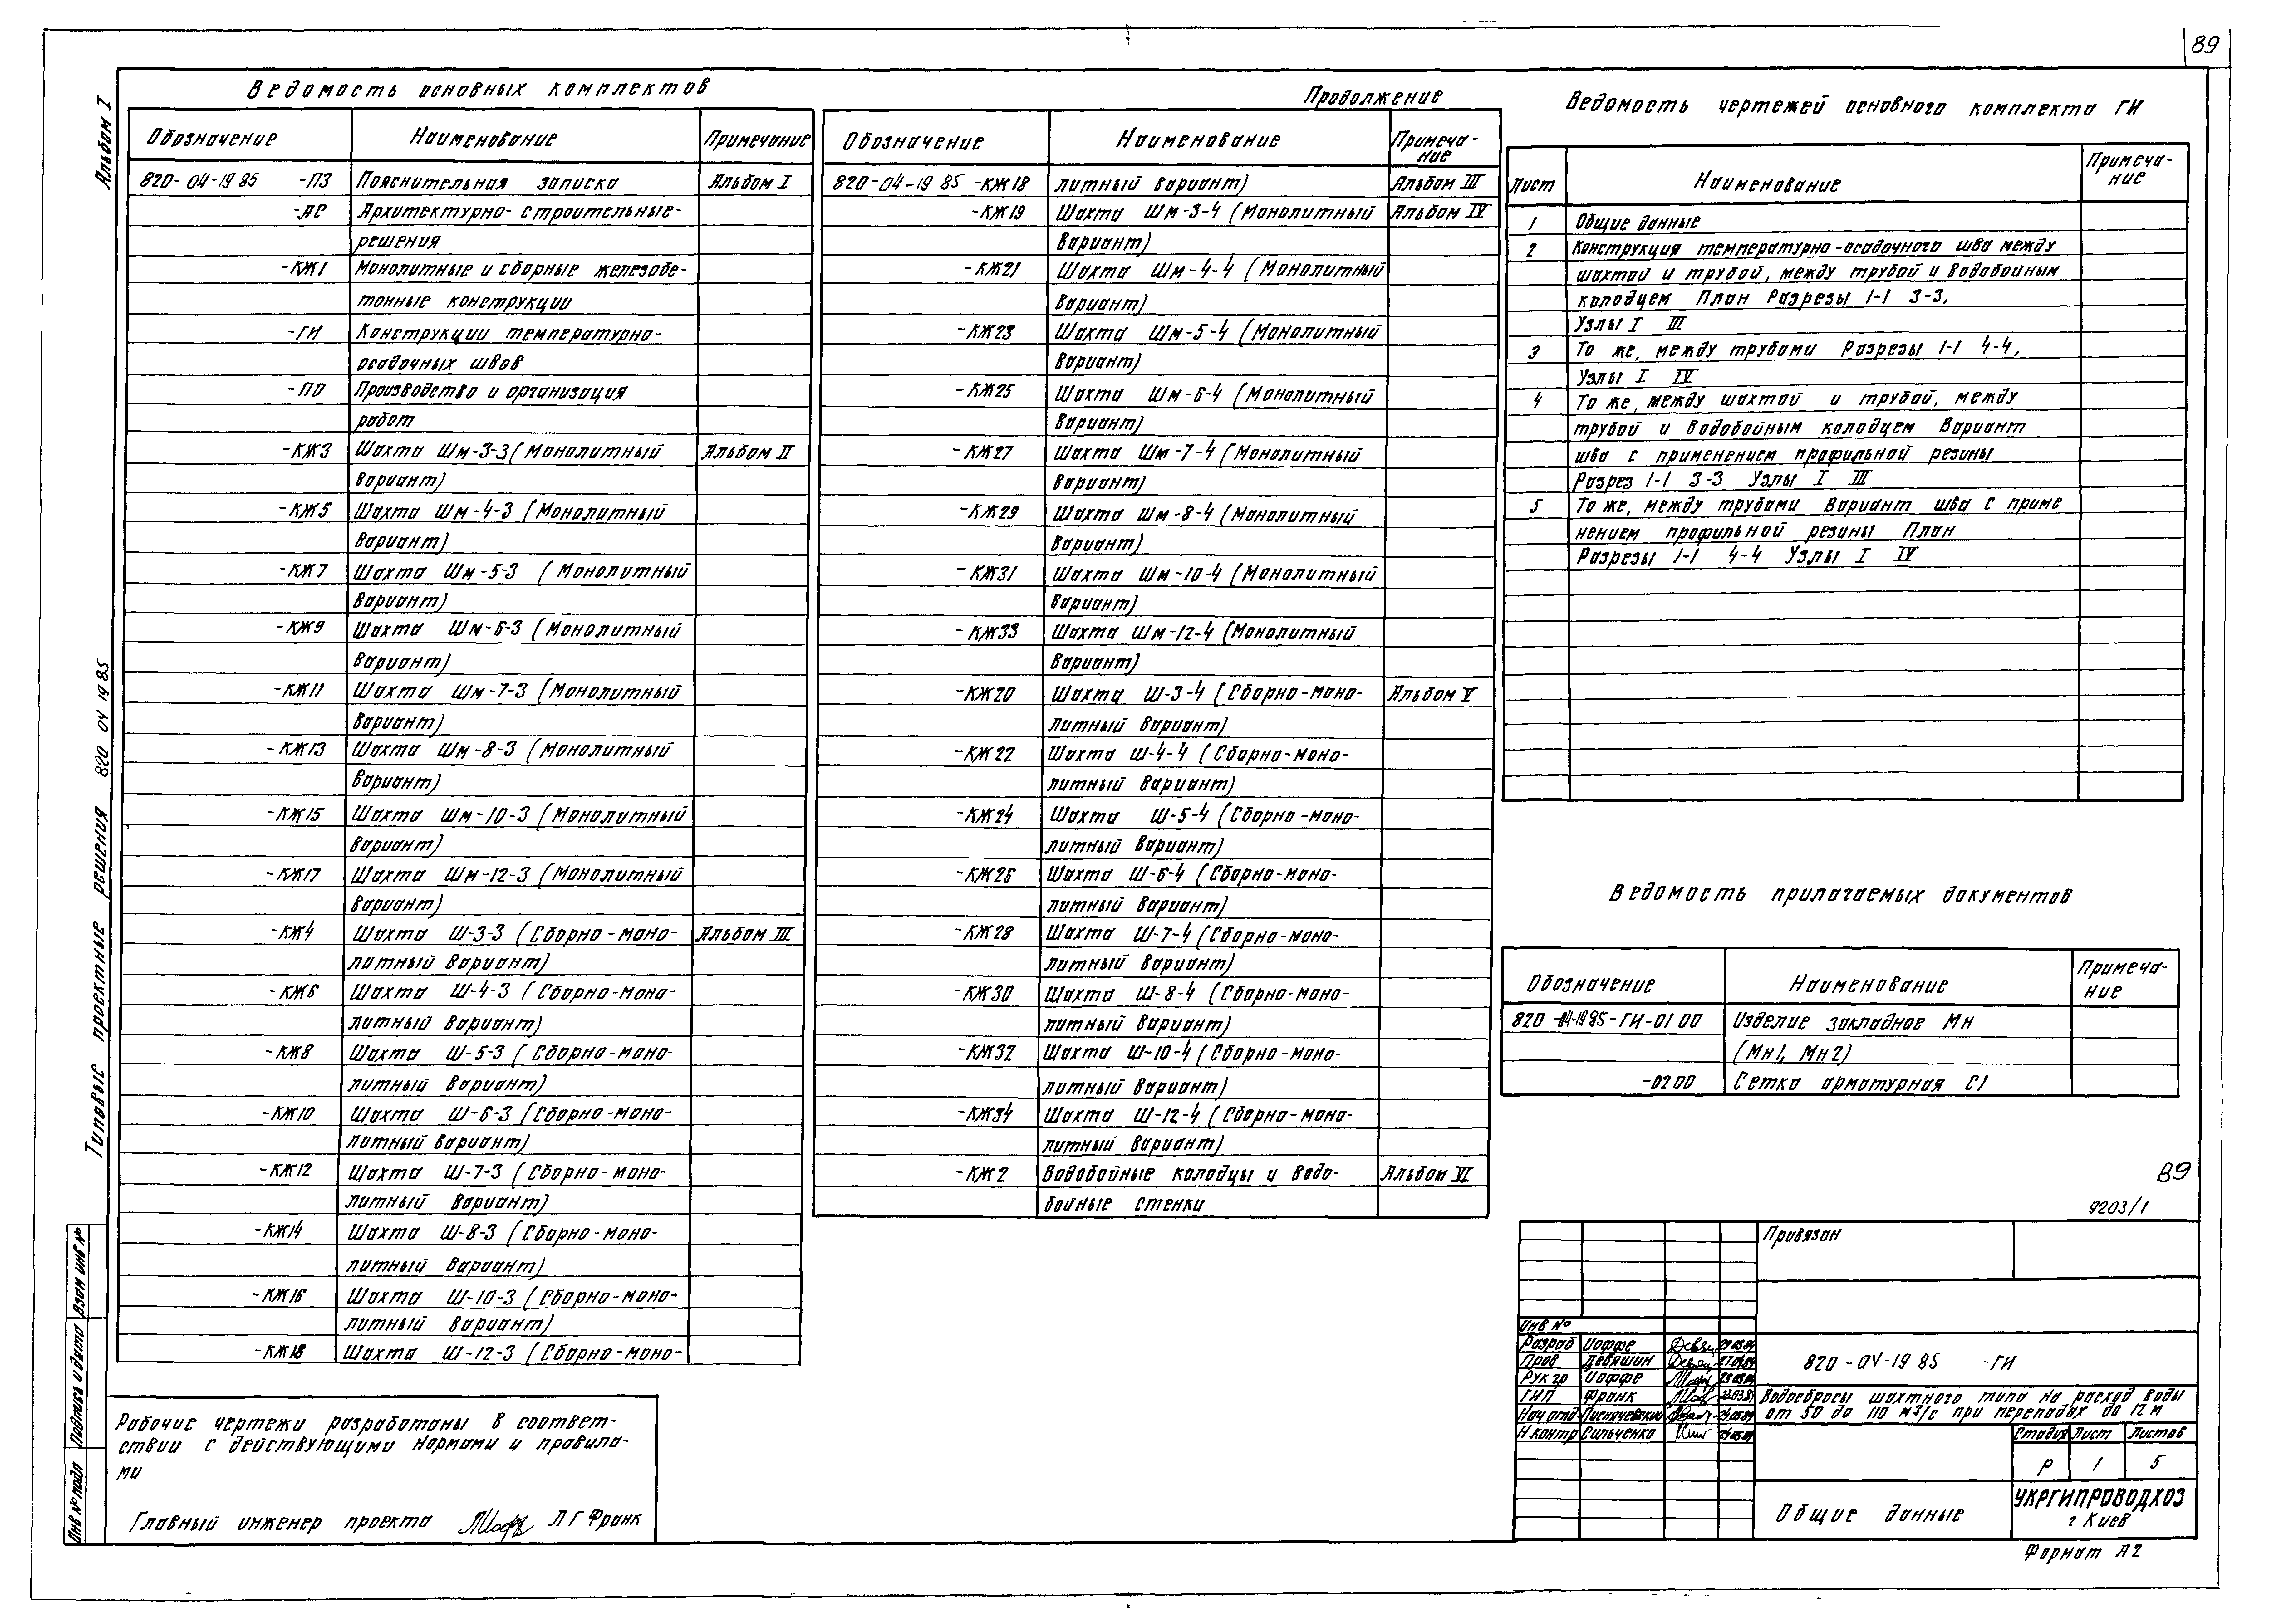 89
Альбом I
Типовые проектные решения 820 04 19 85
Взам инв №
Подпись и дата
Инв № подл
Ведомость основных комплектов
Обозначение Наименование Примечание
820-04-19 85 -ПЗ Пояснительная записка Альбом I
-АС Архитектурно-строительные-
решения
-КЖ1 Монолитные и сборные железобе-
тонные конструкции
-ГИ Конструкции температурно-
осадочных швов
-ПО Производство и организация
работ
-КЖ3 Шахта Шм-3-3 (Монолитный Альбом II
вариант)
-КЖ5 Шахта Шм-4-3 (Монолитный
вариант)
-КЖ7 Шахта Шм-5-3 (Монолитный
вариант)
-КЖ9 Шахта Шм-6-3 (Монолитный
вариант)
-КЖ11 Шахта Шм-7-3 (Монолитный
вариант)
-КЖ13 Шахта Шм-8-3 (Монолитный
вариант)
-КЖ15 Шахта Шм-10-3 (Монолитный
вариант)
-КЖ17 Шахта Шм-12-3 (Монолитный
вариант)
-КЖ4 Шахта Ш-3-3 (Сборно-моно- Альбом III
литный вариант)
-КЖ6 Шахта Ш-4-3 (Сборно-моно-
литный вариант)
-КЖ8 Шахта Ш-5-3 (Сборно-моно-
литный вариант)
-КЖ10 Шахта Ш-6-3 (Сборно-моно-
литный вариант)
-КЖ12 Шахта Ш-7-3 (Сборно-моно-
литный вариант)
-КЖ14 Шахта Ш-8-3 (Сборно-моно-
литный вариант)
-КЖ16 Шахта Ш-10-3 (Сборно-моно-
литный вариант)
-КЖ18 Шахта Ш-12-3 (Сборно-моно-
Рабочие чертежи разработаны в соответ-
ствии с действующими нормами и правила-
ми
Главный инженер проекта Л Г Франк
Продолжение
Обозначение Наименование Примеча-
ние
820-04-19 85 -КЖ18 литный вариант) Альбом III
-КЖ19 Шахта Шм-3-4 (Монолитный Альбом IV
вариант)
-КЖ21 Шахта Шм-4-4 (Монолитный
вариант)
-КЖ23 Шахта Шм-5-4 (Монолитный
вариант)
-КЖ25 Шахта Шм-6-4 (Монолитный
вариант)
-КЖ27 Шахта Шм-7-4 (Монолитный
вариант)
-КЖ29 Шахта Шм-8-4 (Монолитный
вариант)
-КЖ31 Шахта Шм-10-4 (Монолитный
вариант)
-КЖ33 Шахта Шм-12-4 (Монолитный
вариант)
-КЖ20 Шахта Ш-3-4 (Сборно-моно- Альбом V
литный вариант)
-КЖ22 Шахта Ш-4-4 (Сборно-моно-
литный вариант)
-КЖ24 Шахта Ш-5-4 (Сборно-моно-
литный вариант)
-КЖ26 Шахта Ш-6-4 (Сборно-моно-
литный вариант)
-КЖ28 Шахта Ш-7-4 (Сборно-моно-
литный вариант)
-КЖ30 Шахта Ш-8-4 (Сборно-моно-
литный вариант)
-КЖ32 Шахта Ш-10-4 (Сборно-моно-
литный вариант)
-КЖ34 Шахта Ш-12-4 (Сборно-моно-
литный вариант)
-КЖ2 Водобойные колодцы и водо- Альбом VI
бойные стенки
Ведомость чертежей основного комплекта ГИ
Лист Наименование Примеча-
ние
1 Общие данные
2 Конструкция температурно-осадочного шва между
шахтой и трубой, между трубой и водобойным
колодцем План Разрезы 1-1 3-3,
Узлы I III
3 То же, между трубами Разрезы 1-1 4-4,
Узлы I IV
4 То же, между шахтой и трубой, между
трубой и водобойным колодцем Вариант
шва с применением профильной резины
Разрез 1-1 3-3 Узлы I III
5 То же, между трубами Вариант шва с приме
нением профильной резины План
Разрезы 1-1 4-4 Узлы I IV
Ведомость прилагаемых документов
Обозначение Наименование Примеча-
ние
820-04-19 85-ГИ-01 00 Изделие закладное Мн
(Мн1, Мн2)
-02 00 Сетка арматурная С1
89
9203/1
Привязан
Инв №
Разраб Иоффе
Пров Девяшин
Рук гр Иоффе
ГИП Франк 22.03.84
Нач отд
Н контр Сильченко
820-04-19 85 -ГИ
Водосбросы шахтного типа на расход воды
от 50 до 110 м3/с при перепадах до 12 м
Стадия Лист Листов
Р 1 5
Общие данные
УКРГИПРОВОДХОЗ
г Киев
Формат А2